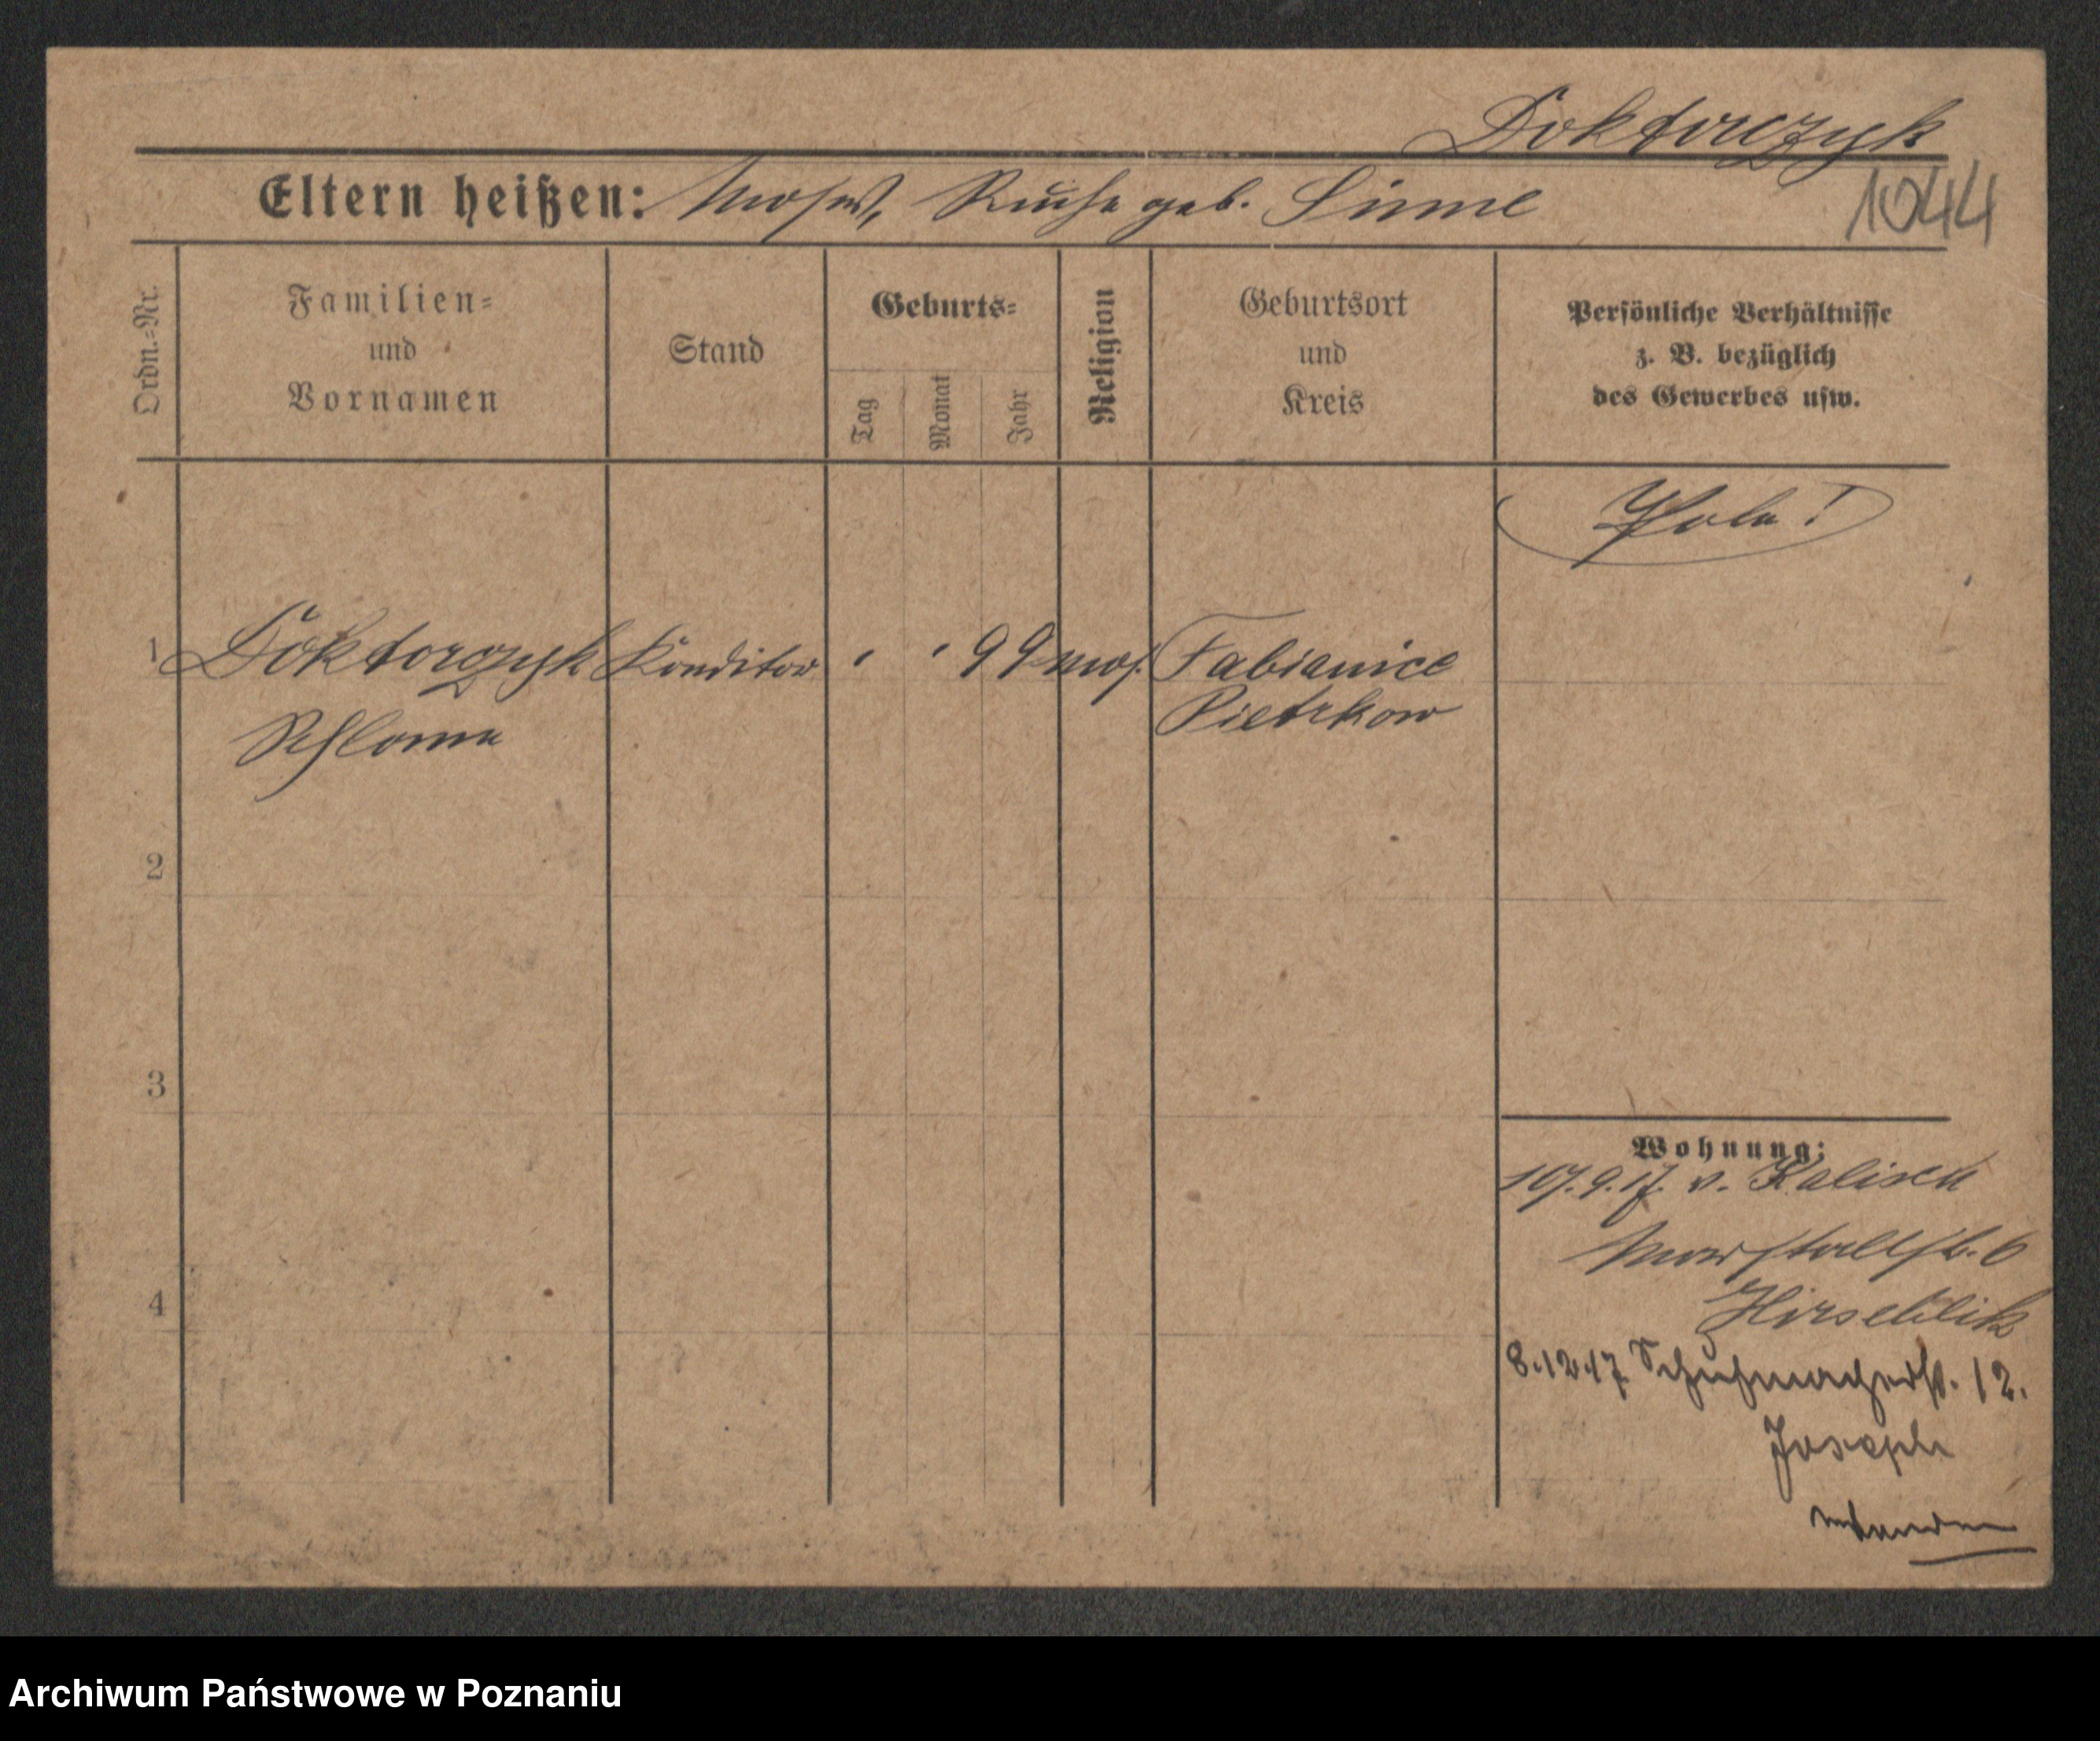 Doktorczyk
Eltern heißen: Moses, Ruche geb. Sinme
1044
Ordn.=Nr.
Familien=
und
Vornamen
Stand
Geburts=
Tag
Monat
Jahr
Religion
Geburtsort
und
Kreis
Persönliche Verhältnisse
z. B. bezüglich
des Gewerbes usw.
Pole!
1 Doktorczyk Konditor " " 99 mos. Fabianice
Schloma Pietrkow
2
3
4
Wohnung:
10.9.17. v. Kalisch
Marstallstr. 6
8.12.17 Schuhmacherstr. 12.
Joseph
Archiwum Państwowe w Poznaniu